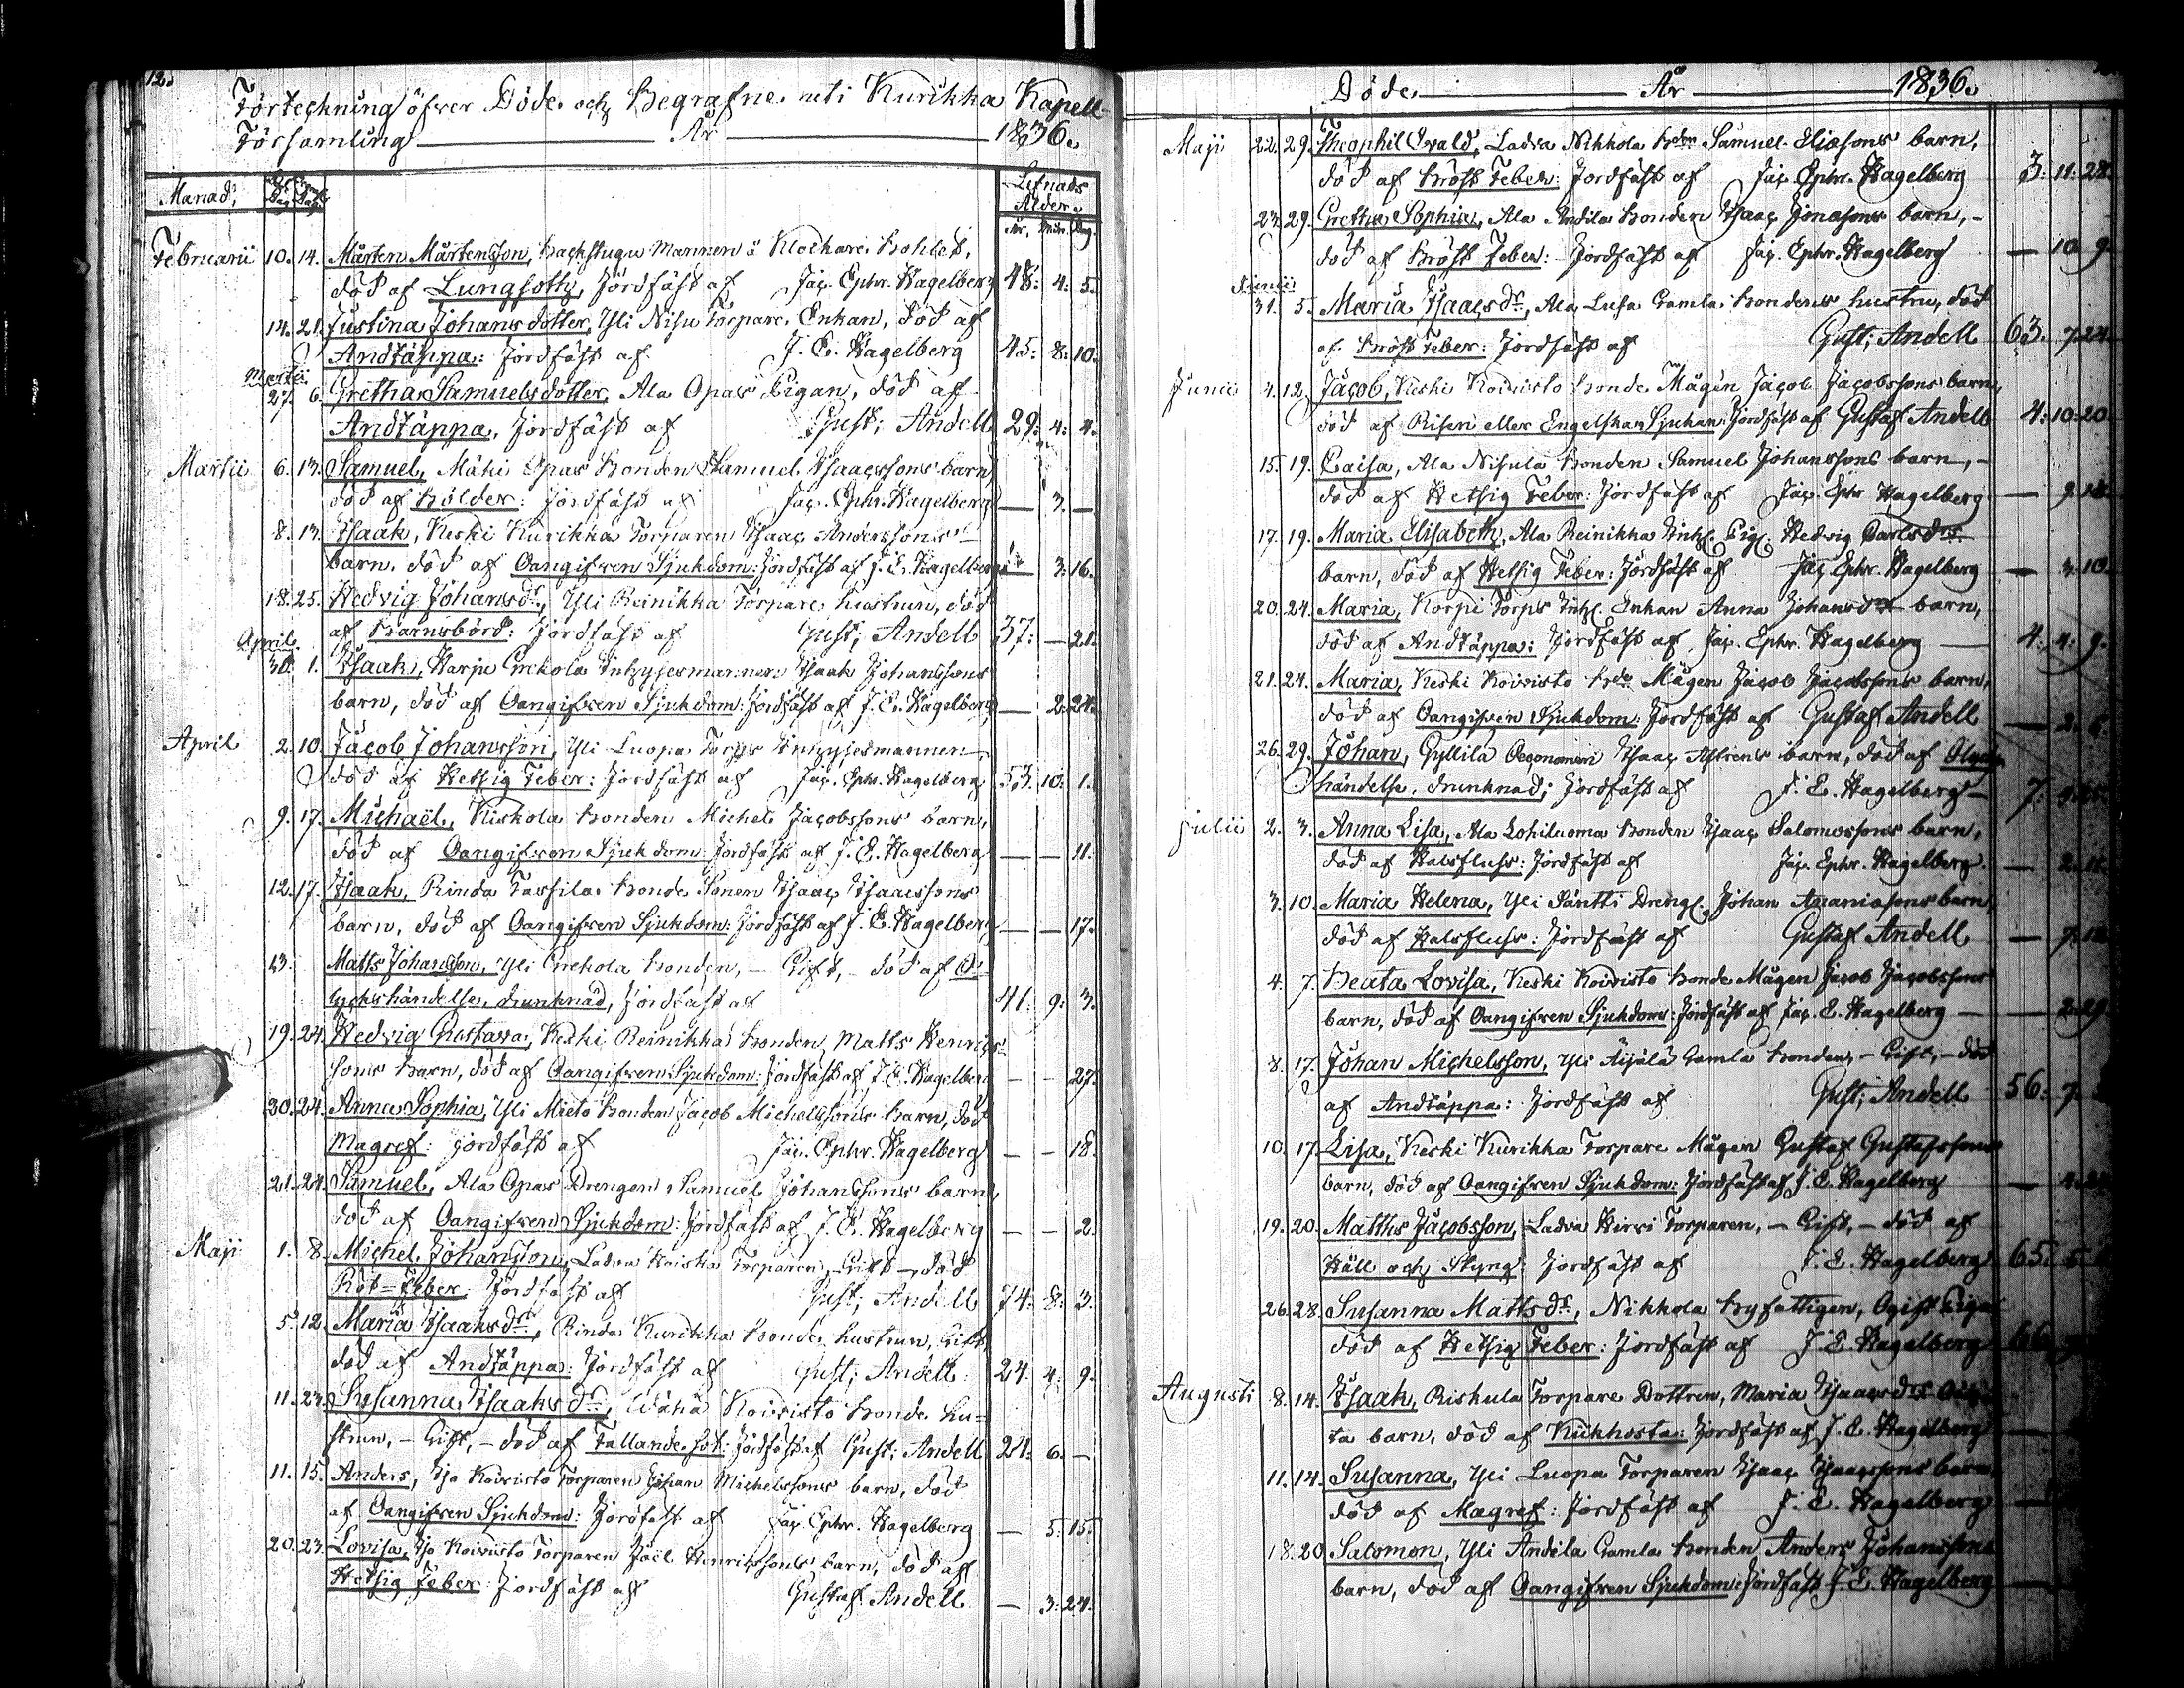 12.
Förteckning öfver Döde och Begrafne uti Kurikka Kapell
Församling År 1836.
Månad, Lefnads Ålder.
År. Mån. Dag.
Februarii 10. 14. Mårten Mårtensson, Backstugu Mannen å Klockare Bohlet,
död af Lungsoth, Jordfäst af Jac. Ephr. Hagelberg 48: 4: 5.
14. 21. Justina Johansdotter, Yli Nisu Torpare Enkan, död af
Andtäppa: Jordfäst af J. E. Hagelberg 45: 8: 10.
Martii
27. 6. Gretha Samuelsdotter, Ala Opas Pigan, död af
Andtäppa, Jordfäst af Gust; Andell 29: 4: 4.
Martii 6. 13. Samuel, Mäki Opas Bonden Samuel Isaacssons barn,
död af Bölder: Jordfäst af Jac. Ephr. Hagelberg — 3. —
8. 13. Isaak, Keski Kurikka Torparen Isaac Anderssons
barn, död af Oangifven Sjukdom: Jordfäst af J. E. Hagelberg — 3: 16.
18. 25. Hedvig Johansdr, Yli Reinikka Torpare hustrun, död
af Barnsbörd: Jordfäst af Gust; Andell 37: — 21.
April.
30. 1. Isaak, Harju Grekola Inhysesmannen Isaak Johanssons
barn, död af Oangifven Sjukdom: Jordfäst af J. E. Hagelberg — 2: 24.
April 2. 10. Jacob Johansson, Yli Luopa Torps Inhysesmannen,
död af Hetsig Feber: Jordfäst af Jac. Ephr. Hagelberg 53: 10: 1.
9. 17. Michaël, Kiskola Bonden Michel Jacobssons barn,
död af Oangifven Sjukdom: Jordfäst af J. E. Hagelberg — — 11.
12. 17. Isaak, Rinda Tassila Bonde Sonen Isaac Isaacssons
barn, död af Oangifven Sjukdom: Jordfäst af J. E. Hagelberg — — 17.
13. Matts Johansson, Yli Grekola Bonden, — Gift, — död af O-
lyckshändelse, drunknad, Jordfäst af 41: 9: 3.
19. 24. Hedvig Gustava, Keski Reinikka Bonden Matts Henrics-
sons barn, död af Oangifven Sjukdom: Jordfäst af J. E. Hagelberg — — 27.
20. 24. Anna Sophia, Yli Mieto Bonden Jacob Michelssons barn, död
Magref: Jordfäst af Jac. Ephr. Hagelberg — — 18.
21. 24. Samuel, Ala Opas Drengen Samuel Johanssons barn,
död af Oangifven Sjukdom: Jordfäst af J. E. Hagelberg — — 2.
Maji 1. 8. Michel Johansson, Ladva Torparen, Gift — död
Röt-Feber: Jordfäst af Gust; Andell 74: 8: 3.
5. 12. Maria Isaaksdr, Rinda Kurikka Bonde hustrun, Gift,
död af Andtäppa: Jordfäst af Gust; Andell: 24. 4: 9.
11. 23. Susanna Isaaksdr, Wähä Koivisto Bonde hu-
strun, — Gift, — död af Fallande sot: Jordfäst af Gust; Andell 21: 6. —
11. 15. Anders, Iso Koivisto Torparen Johan Michelssons barn, död
af Oangifven Sjukdom: Jordfäst af Jac. Ephr. Hagelberg — 5: 15.
20. 23. Lovisa, Iso Koivisto Torparen Joël Henrikssons barn, död af
Hetsig Feber: Jordfäst af Gustaf Andell — 3: 24.
Döde År 1836.
Maji 22. 29. Theophil Evald, Ladva Nikkola Bden Samuel Eliæsons barn,
död af Bröst Feber: Jordfäst af Jac. Ephr. Hagelberg 3: 11: 28.
23. 29. Gretha Sophia, Ala Andila Bonden Isaac Jonasons barn, —
död af Bröst Feber: Jordfäst af Jac. Ephr. Hagelberg — 10 9.
Junii
31. 5. Maria Isaacsdr, Ala Luopa Gamla Bondens hustru, död
af Bröst Feber: Jordfäst af Gust; Andell 63. 7. 24.
Junii 4. 12. Jacob, Keski Koivisto Bonde Mågen Jacob Jacobssons barn,
död af Risen eller Engelskan Sjukan: Jordfäst af Gustaf Andell 4: 10: 20.
15. 19. Caisa, Ala Nisula Bonden Samuel Johanssons barn, —
död af Hetsig Feber: Jordfäst af Jac. Ephr Hagelberg — 9. 18.
17. 19. Maria Elisabeth, Ala Reinikka Inh. Pig. Hedvig Carlsdrs
barn, död af Hetsig Feber: Jordfäst af Jac Ephr. Hagelberg — 3. 10.
20. 24. Maria, Korpi Torps Inh. Enkan Anna Johansdrs barn,
död af Andtäppa: Jordfäst af Jac. Ephr. Hagelberg 4: 4: 9.
21. 24. Maria, Keski Koivisto Bde Mågen Jacob Jacobssons barn,
död af Oangifven Sjukdom: Jordfäst af Gustaf Andell — 2.
26. 29. Johan, Gyllilä Oeconomen Isaac Astrens barn, död af Olycks
händelse, drunknad; Jordfäst af J. E. Hagelberg — 7.
Julii 2. 3. Anna Lisa, Ala Lohiluoma Bonden Isaac Salomossons barn,
död af Halsfluss: Jordfäst af Jac. Ephr. Hagelberg. — 2.
3. 10. Maria Helena, Yli Säntti Dreng. Johan Ananiæsons barn,
död af Halsfluss: Jordfäst af Gustaf Andell — 7.
4. 7. Beata Lovisa, Keski Koivisto Bonde Mågen Jacob Jacobssons
barn, död af Oangifven Sjukdom: Jordfäst af Jac. E. Hagelberg — 2. 29.
8. 17. Johan Michelsson, Yli Äijälä Gamla Bonden, — Gift, — död
af Andtäppa: Jordfäst af Gust; Andell 56: 7.
10. 17. Lisa, Keski Kurikka Torpare Mågen Gustaf Gustafssons
barn, död af Oangifven Sjukdom: Jordfäst af J. E. Hagelberg —
19. 20. Matths Jacobsson, Ladva Hirvi Torparen, — Gift, — död af
Håll och Styng: Jordfäst af J. E. Hagelberg 65: 5
26. 28. Susanna Mattsdr, Nikkola Byfattigen, Ogift Piga
död af Hetsig Feber: Jordfäst af J. E. Hagelberg 66
Augusti 8. 14. Isaak, Riskula Torpare Dottren, Maria Isaacsdrs
ta barn, död af Kikhosta: Jordfäst af J. E. Hagelberg
11. 14. Susanna, Yli Luopa Torparen Isaac Isaacssons barn,
död af Magref: Jordfäst af J. E. Hagelberg —
18. 20 Salomon, Yli Andila Gamla Bonden Anders Johanssons
barn, död af Oangifven Sjukdom: Jordfäst J. E. Hagelberg